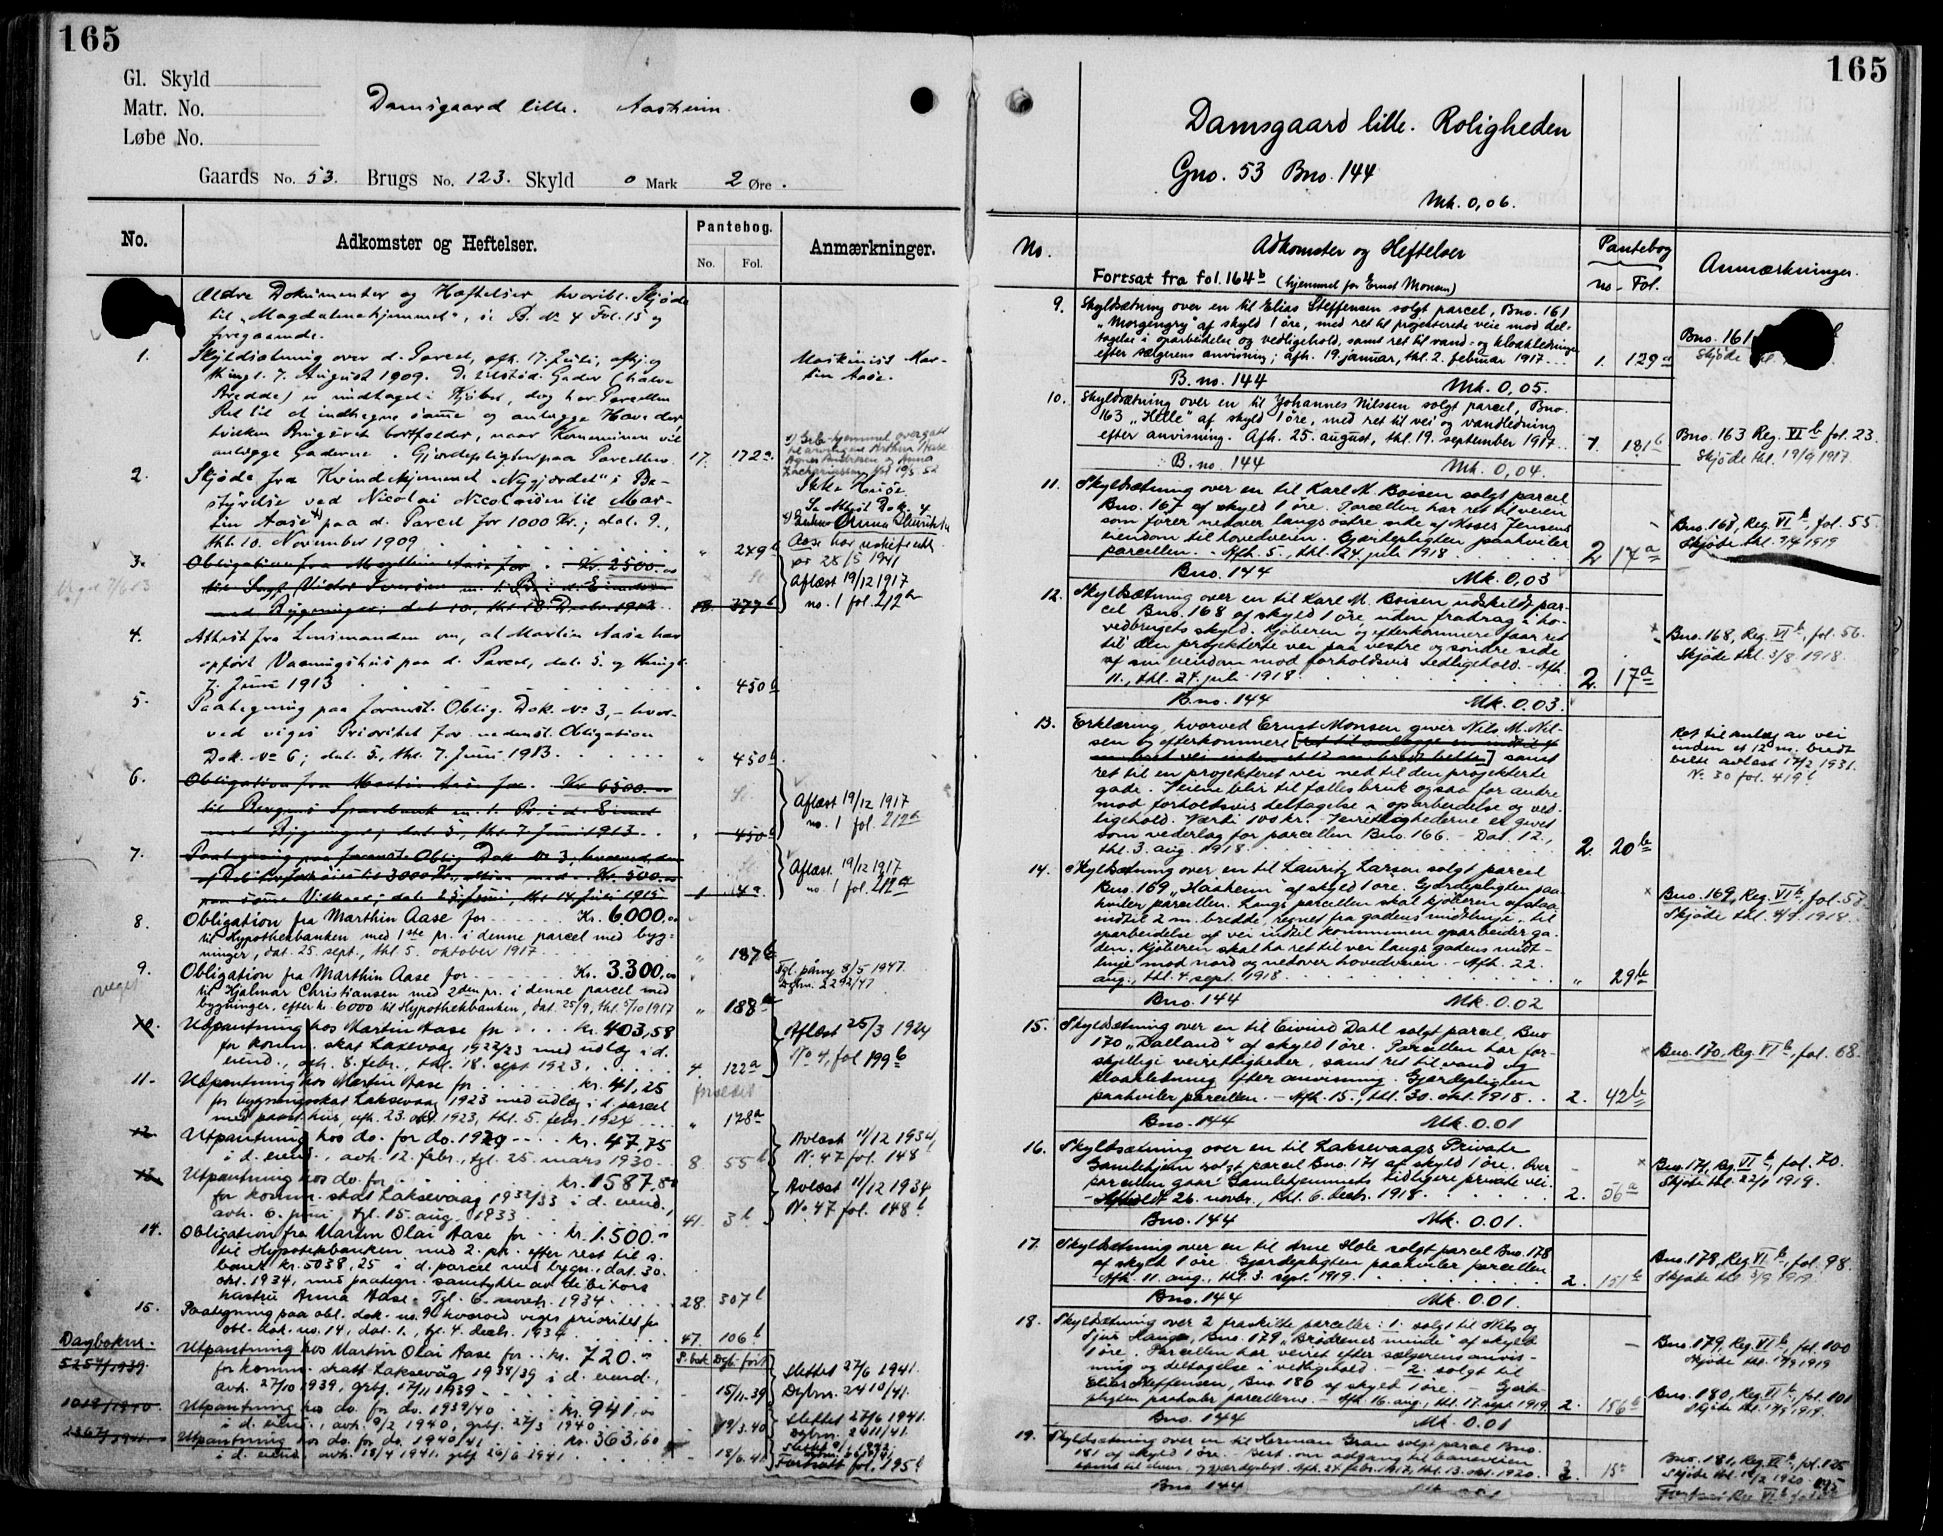 165
Gl. Skyld
Matr. No.
Løbe No.
Damsgaard lille. Aasheim.
Gaards No. 53. Brugs No. 123. Skyld 0 Mark 2 Øre.
No. Adkomster og Heftelser. Pantebog. No. Fol. Anmærkninger.
Ældre Dokumenter og Hæftelser, hvoribl. Skjøde
til „Magdalenahjemmet", se B. No 4 Fol. 15 og
foregaaende.
1. Skyldsætning over d. Parcel, afh. 17. Juli, afhj. og
thingl. 7. August 1909. De tilstød. Gader (halve
Bredde) er indtaget i Kjøbet, dog har Parcellen
Ret til at indhegne samme og anlægge Have der,
hvilken Brugsret bortfalder, naar Kommunen vil
anlægge Gaderne. Gjærdepligten paa Parcellen. 17. 172a.
Maskinist Mar-
tin Aase.
2. Skjøde fra Kvindehjemmet „Nygjærdet"s Be-
styrelse ved Nicolai Nicolaisen til Mar-
tin Aase x) paa d. Parcel for 1000 Kr.; dat. 9.,
thl. 10. November 1909 " 249b
3. Obligation fra Marthin Aase for Kr. 2500.00
med Bygninger; dat. 10., thl. 18. Decbr. 1912 18. 377b
Aflæst 19/12 1917
no. 1 fol. 212a
4. Attest fra Lensmanden om, at Martin Aase har
opført Vaaningshus paa d. Parcel, dat. 5. og thingl.
7. Juni 1913 " 450b
5. Paategning paa foranst. Oblig. Dok. No 3, – hvor-
ved viges Prioritet for nedenst. Obligation
Dok. No 6; dat. 5., thl. 7. Juni 1913. " 450b
6. Obligation fra Martin Aase for Kr 6500.00
til Bergens Sparebank m. 1. Pr. i d. Eiend.
med Bygninger; dat. 5., thl. 7. Juni 1913. " 450b
Aflæst 19/12 1917
no. 1 fol. 212a
7. Paategning paa foranst. Oblig. Dok. No 3, hvorved den
Aflæst 19/12 1917
no. 1 fol. 212a
1 4a
8. Obligation fra Marthin Aase for Kr. 6000,00
til Hypothekbanken med 1ste pr. i denne parcel med byg-
ninger, dat. 25. sept., thl. 5. oktober 1917 " 187b
9. Obligation fra Marthin Aase for Kr. 3.300,00
til Hjalmar Christiansen med 2den pr. i denne parcel med
bygninger, efter kr. 6000 til Hypothekbanken, dat. 25/9, thl. 5/10 1917 " 188a
Tgl. påny 8/5 1947.
10. Utpantning hos Martin Aase for kr. 403,58
for komm. skat Laksevaag 1922/23 med utlæg i d.
eiend., avh. 8. febr., thl. 18. sept 1923, 4. 122a
Aflæst 25/3 1924
No 4, fol 199b
11. Utpantning hos Martin Aase for kr. 41,25
for bygningsskat Laksevaag 1923 med utlæg i d. parcel
med paast. hus, afh. 23. okt 1923, thl. 5. febr. 1924 " 178a
forældet
12. Utpantning hos do. for do. 1929 kr. 47,75
i d. eiend., avh. 12. febr., tgl. 25. mars 1930. 8. 55b
Avlæst 11/12 1934,
No 47 fol. 148b
13. Utpantning hos do. for kr. 1587,80
for komm. skat Laksevaag 1932/33 i d. eiend.,
avh. 6. juni, tgl. 15. aug. 1933 41. 3b
Avlæst 11/12 1934
No 47 fol. 148b
14. Obligation fra Martin Olai Aase for kr. 1.500.00
til Hypotekbanken med 2. pr. efter rest til s.
banet kr. 5038,25 i d. parcel med bygn., dat. 30.
okt. 1934, med paategn. samtykke av debitors
hustru Anna Aase. Tgl. 6. novbr. 1934 28. 307b
15. Paategning paa obl. dok. no. 9 hvorved viges prioritet for
obl. dok. no. 14, dat. 1., tgl. 4. decbr. 1934 47. 106b
Dagboknr.
5257/1939 Utpantning hos Martin Olai Aase for kr. 720.00
for komm. skatt Laksevåg 1938/39 i d. eiend.,
avh. 27/10 1939, grbf. 17/11 1939 15/11.39
P. bok Dgb. ført
Slettet 27/6 1941.
Dgbnr. 2410/41.
1018/1940. Utpantning hos do. for do. 1939/40 kr. 941,00
i d. eiend., avh. 9/2 1940, grbf. 27/3 1940 19/3.40
Slettet 27/6 1941.
Dgbnr. 2411/41.
2367/1941. Utpantning hos do. for do. 1940/41 kr. 363,60
i d. eiend., avh. 18/4 1941. grbf. 26/6 1941 18/6.41
Fortsatt fol. 195b
165
Damsgaard lille. Roligheden
Gno. 53 Bno. 144
Mk. 0,06.
No. Adkomster og Heftelser Pantebog no - Fol. Anmærkninger.
Fortsat fra fol. 164b (hjemmel for Ernst Monsen)
9. Skyldsætning over en til Elias Steffensen solgt parcel, Bno. 161
„Morgengry" af skyld 1 øre, med ret til projekterte veie mod del-
tagelse i oparbeidelse og vedligehold, samt ret til vand- og kloakledninger
efter sælgerens anvisning; afh. 19. januar, thl. 2. februar 1917 1. 129a
Bno. 161
Skjøde
B. no. 144 Mk. 0,05.
10. Skyldsætning over en til Johannes Nilssen solgt parcel, Bno.
163 „Helle" af skyld 1 øre, med ret til vei og vandledning
efter anvisning. Afh. 25. august, thl. 19. september 1917 1. 181b
Bno. 163 Reg. VI b fol. 23.
Skjøde thl. 19/9 1917.
B. no. 144 Mk. 0,04.
11. Skyldsætning over en til Karl M. Boisen solgt parcel
Bno. 167 af skyld 1 øre. Parcellen har ret til veien
som fører nedover langs østre side af Moses Jensens
eiendom til hovedveien. Gjærdepligten paahviler
parcellen. - Afh. 5., thl. 24. juli 1918 2 17a
Bno. 167, Reg. VI b, fol. 55.
Skjøde thl. 3/4 1919
Bno. 144 Mk. 0,03
12. Skyldsætning over en til Karl M. Boisen utskildt par-
cel Bno. 168 af skyld 1 øre uden fradrag i ho-
vedbrugets skyld. Kjøberen og efterkommere faar ret
til den projekterte vei paa vestre og søndre side
af sin eiendom mod forholdsvis vedligehold. - Afh.
11., thl. 24. juli 1918 2. 17a
Bno. 168, Reg. VI b, fol. 56.
Skjøde thl. 3/8 1918.
Bno. 144 Mk. 0.03.
13. Erklæring, hvorved Ernst Monsen giver Nils M. Nil-
sen og efterkommere [ret til anlægge en indtil 4
m. bred vei inden et 12 m. bredt belte] samt
ret til en projekteret vei ned til den projekterte
gade. Veiene blir til fælles bruk også for andre
mod forholdsvis deltagelse i oparbeidelse og ved-
ligehold. Værdi 100 kr. Veirettighederne er givet
som vederlag for parcellen Bno. 166. - Dat. 12.,
thl. 3. aug. 1918 2. 20b
Ret til anlæg av vei
inden et 12 m. bredt
belte avlæst 17/2 1931.
No 30 fol. 419b
14. Skyldsætning over en til Lauritz Larsen solgt parcel
Bno. 169 „Haaheim" af skyld 1 øre. Gjærdepligten paa-
hviler parcellen. Langs parcellen skal kjøberen afstaa
indtil 2 m. bredde, regnet fra gadens midtlinje, til
oparbeidelse af vei indtil kommunen oparbeider ga-
den. Kjøberen skal ha ret til vei langs gadens midt-
linje mod nord og nedover hovedveien. - Afh. 22.
aug., thl. 4. sept. 1918 " 29b
Bno. 169, Reg. VI b, fol. 57.
Skjøde thl. 4/9 1918.
Bno. 144 Mk. 0.02
15. Skyldsætning over en til Eivind Dahl solgt parcel, Bno
170 „Dalland" af skyld 1 øre. Parcellen har for-
skjellige veirettigheder, samt ret til vand og
kloakledning efter anvisning. Gjærdepligten
paahviler parcellen. - Afh. 15., thl. 30. okt. 1918 2. 42b
Bno. 170, Reg. VI b, fol. 68.
Bno. 144 Mk. 0.01
16. Skyldsætning over en til Laksevaags Private
Gamlehjem solgt parcel Bno. 171 af skyld 1 øre. Over
parcellen gaar Gamlehjemmets tidligere private vei.
- Afholdt 26. novbr., thl. 6. decbr. 1918 2. 56a
Bno. 171, Reg. VI b, fol. 70.
Skjøte thl. 22/1 1919.
Bno. 144 Mk. 0.01.
17. Skyldsætning over en til Arne Hole solgt parcel Bno. 178
af skyld 1 øre. Gjærdepligten paahviler parcellen
Afh. 11. aug., thl. 3. sept. 1919 2. 151b
Bno. 178, Reg. VI b, fol. 98.
Skjøte thl. 3/9 1919.
Bno. 144 Mk. 0.01.
18. Skyldsætning over 2 fraskilte parceller: 1. solgt til Nils og
Sjur Hauge, Bno. 179 „Brødrenes minde" af skyld
1 øre. Parcellen har veiret efter sælgerens anvis-
ning og deltagelse i vedligehold. - 2. solgt til
Elias Steffensen, Bno. 180 af skyld 1 øre. - Gjærde-
pligten paahviler parcellerne. Afh. 16. aug., thl. 17. sept 1919 2. 156b
Bno. 179, Reg. VI b, fol. 100
Skjøte thl. 17/9 1919
Bno. 180, Reg. VI b, fol. 101
Skjøte thl. 17/9 1919.
Bno. 144 Mk. 0.01
19. Skyldsætning over en til Herman Gran solgt parcel Bno.
181 af skyld 1 øre. Best. om adgang til baneveien
Bno. 181, Reg. VI b, fol. 125
Bno. 144